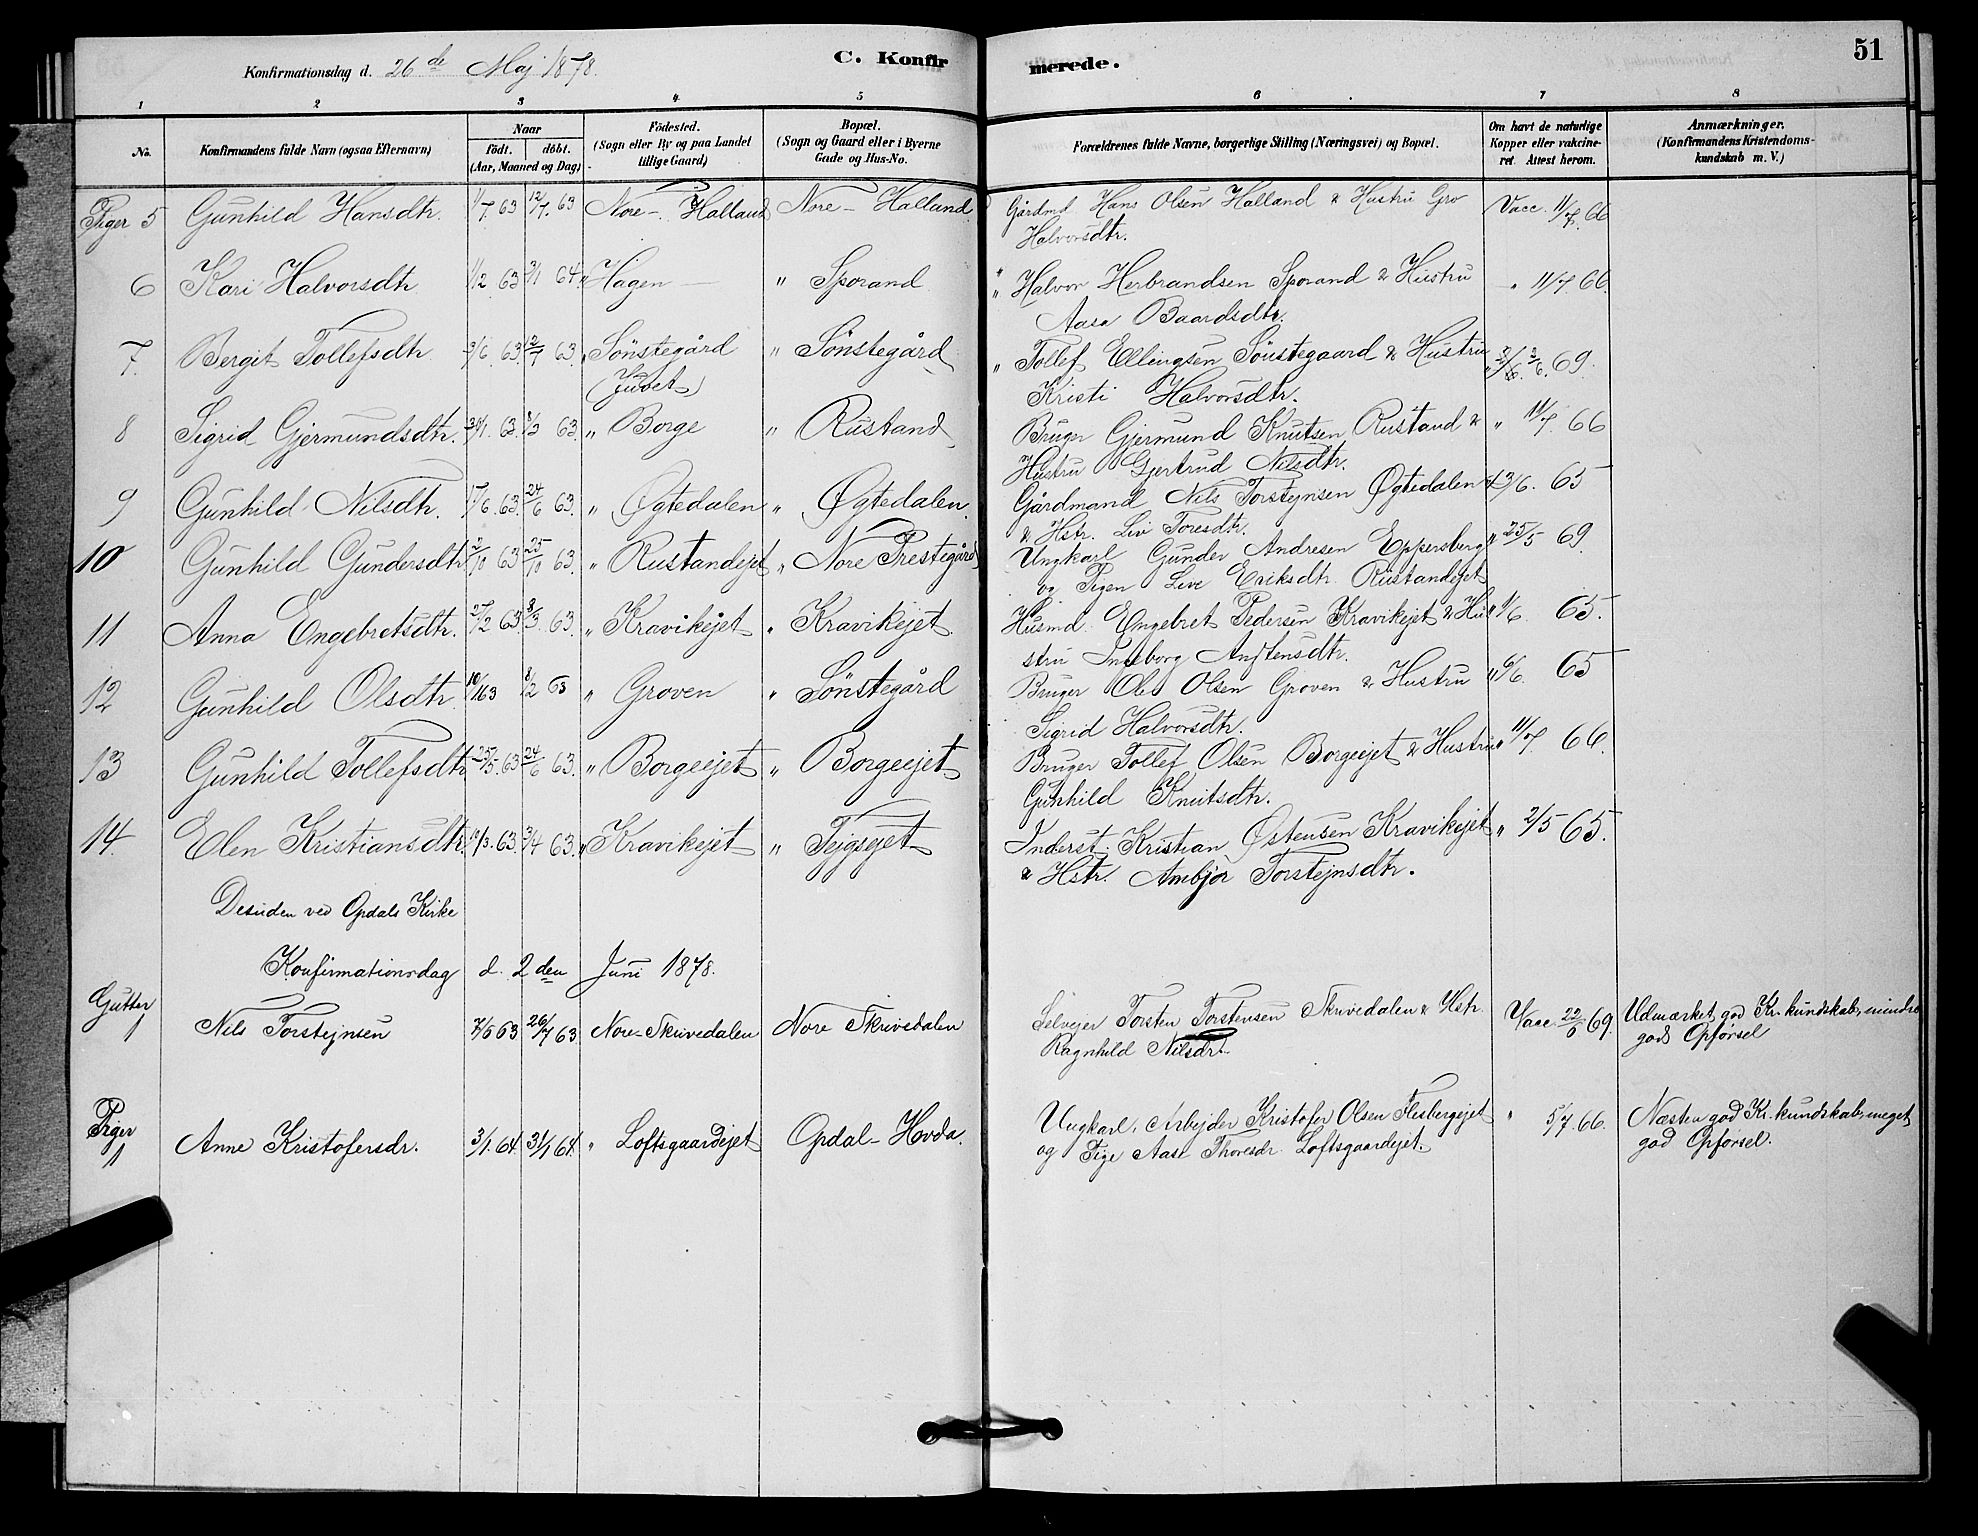 Konfirmationsdag d. 26de Maj 1878. C. Konfirmerede. 51
1 2 3 4 5 6 7 8
No. Konfirmandens fulde Navn (ogsaa Efternavn) Naar födt. döbt. (Aar, Maaned og Dag) Födested. (Sogn eller By og paa Landet tillige Gaard) Bopæl. (Sogn og Gaard eller i Byerne Gade og Hus-No. Forældrenes fulde Navne, borgerlige Stilling (Næringsvei) og Bopæl. Om havt de naturlige Kopper eller vakcineret. Attest herom. Anmærkninger. (Konfirmandens Kristendomskundskab m. V.)
Piger 5 Gunhild Hansdtr. 1/7. 63 12/7. 63 Nore-. Halland Nore- Halland Gårdmd Hans Olsen Halland & Hustru Gro Vacc. 11/7. 66
Halvorsdtr.
6 Kari Halvorsdtr 1/12 63 3/1 64 " Hagen " Sporand " Halvor Herbrandsen Sporand & Hustru " 11/7 66.
Aase Baardsdtr.
7. Bergit Tollefsdtr 3/6. 63 12/7 63. " Sönstegård " Sönstegård " Tollef Ellingsen Sönstegaard & Hustru " 3/6. 69.
(Juvet) Kristi Halvorsdtr.
8 Sigrid Gjermundsdtr. 63. 63. " Borge " Rustand Bruger Gjermund Knutsen Rustand & " 11/7. 66
Hustru Gjertrud Nilsdtr.
9 Gunhild Nilsdtr. 17/6. 63. 24/6 63. " Øgtedalen " Øgtedalen. Gårdmand Nils Torstejnsen Øgtedalen 3/6. 65
& Hstr. Liv Toresdtr.
10 Gunhild Gundersdtr 2/10 63 25/10 63. " Rustandejet " Nore Prestegård Ungkarl Gunder Andresen Eppersberg " 25/5 69.
og Pigen Live Eriksdtr. Rustandejet
11 Anna Engebretsdtr. 27/2 63 8/3. 63. " Kravikejet " Kravikejet. Husmd. Engebret Pedersen Kravikejet & Hu " 1/6. 65.
stru Ingeborg Anftensdtr.
12 Gunhild Olsdtr. 10/1 63 8/2 63 " Groven " Sönstegård Bruger Ole Olsen Groven & Hustru " 6/6. 65
Sigrid Halvorsdtr.
13 Gunhild Tollefsdtr 25/5. 63 24/6 63. " Borgeejet " Borgeejet Bruger Tollef Olsen Borgeejet & Hustru " 11/7. 66.
Gunhild Knutsdtr.
14. Elen Kristiansdtr. 63. 3/4 63. " Kravikejet " Tejgsejet Inderst. Kristian Østensen Kravikejet " 2/5 65.
& Hstr. Ambjør Torstejnsdtr.
Desuden ved Opdals Kirke
Konfirmationsdag d. 2den Juni 1878.
Gutter 1 Nils Torstejnsen 7/6 63 26/7 63 Nore-Skrivedalen Nore Skrivedalen Selvejer Torsten Torstensen Skrivedalen & Hstr. Vacc 22/6 69. Udmærket god Kr. kundskab, mindre
Ragnhild Nilsdr. god Opførsel
Piger 1 Anne Kristofersdr. 3/1. 64. 31/1 64. " Loftsgaardejet Opdal- Hovda. Ungkarl, Arbejder Kristofer Olsen Flesbergejet " 5/7. 66. Næsten god Kr. kundskab, meget
og Pige Aase Thoresdr. Loftsgaardejet. god Opførsel.